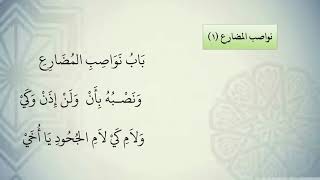 نواصب المضارع (١)
بَابُ نَوَاصِبِ المُضَارِعِ
وَنَصْبُهُ بِأَنْ وَلَنْ إِذَنْ وَكَيْ
وَلاَمِ كَيْ لاَمِ الجُحُودِ يَا أُخَيْ